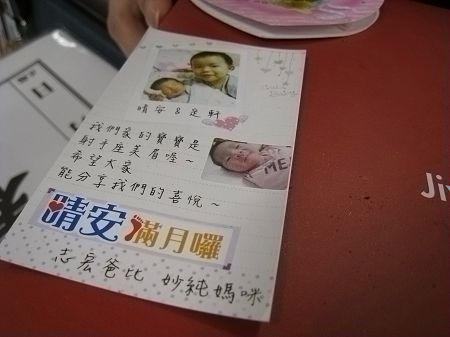 晴安&定軒
我們家的寶寶是
射手座美眉喔~
希望大家
能分享我們的喜悅~
晴安滿月囉
志宏爸比 妙純媽咪
ME
Ji